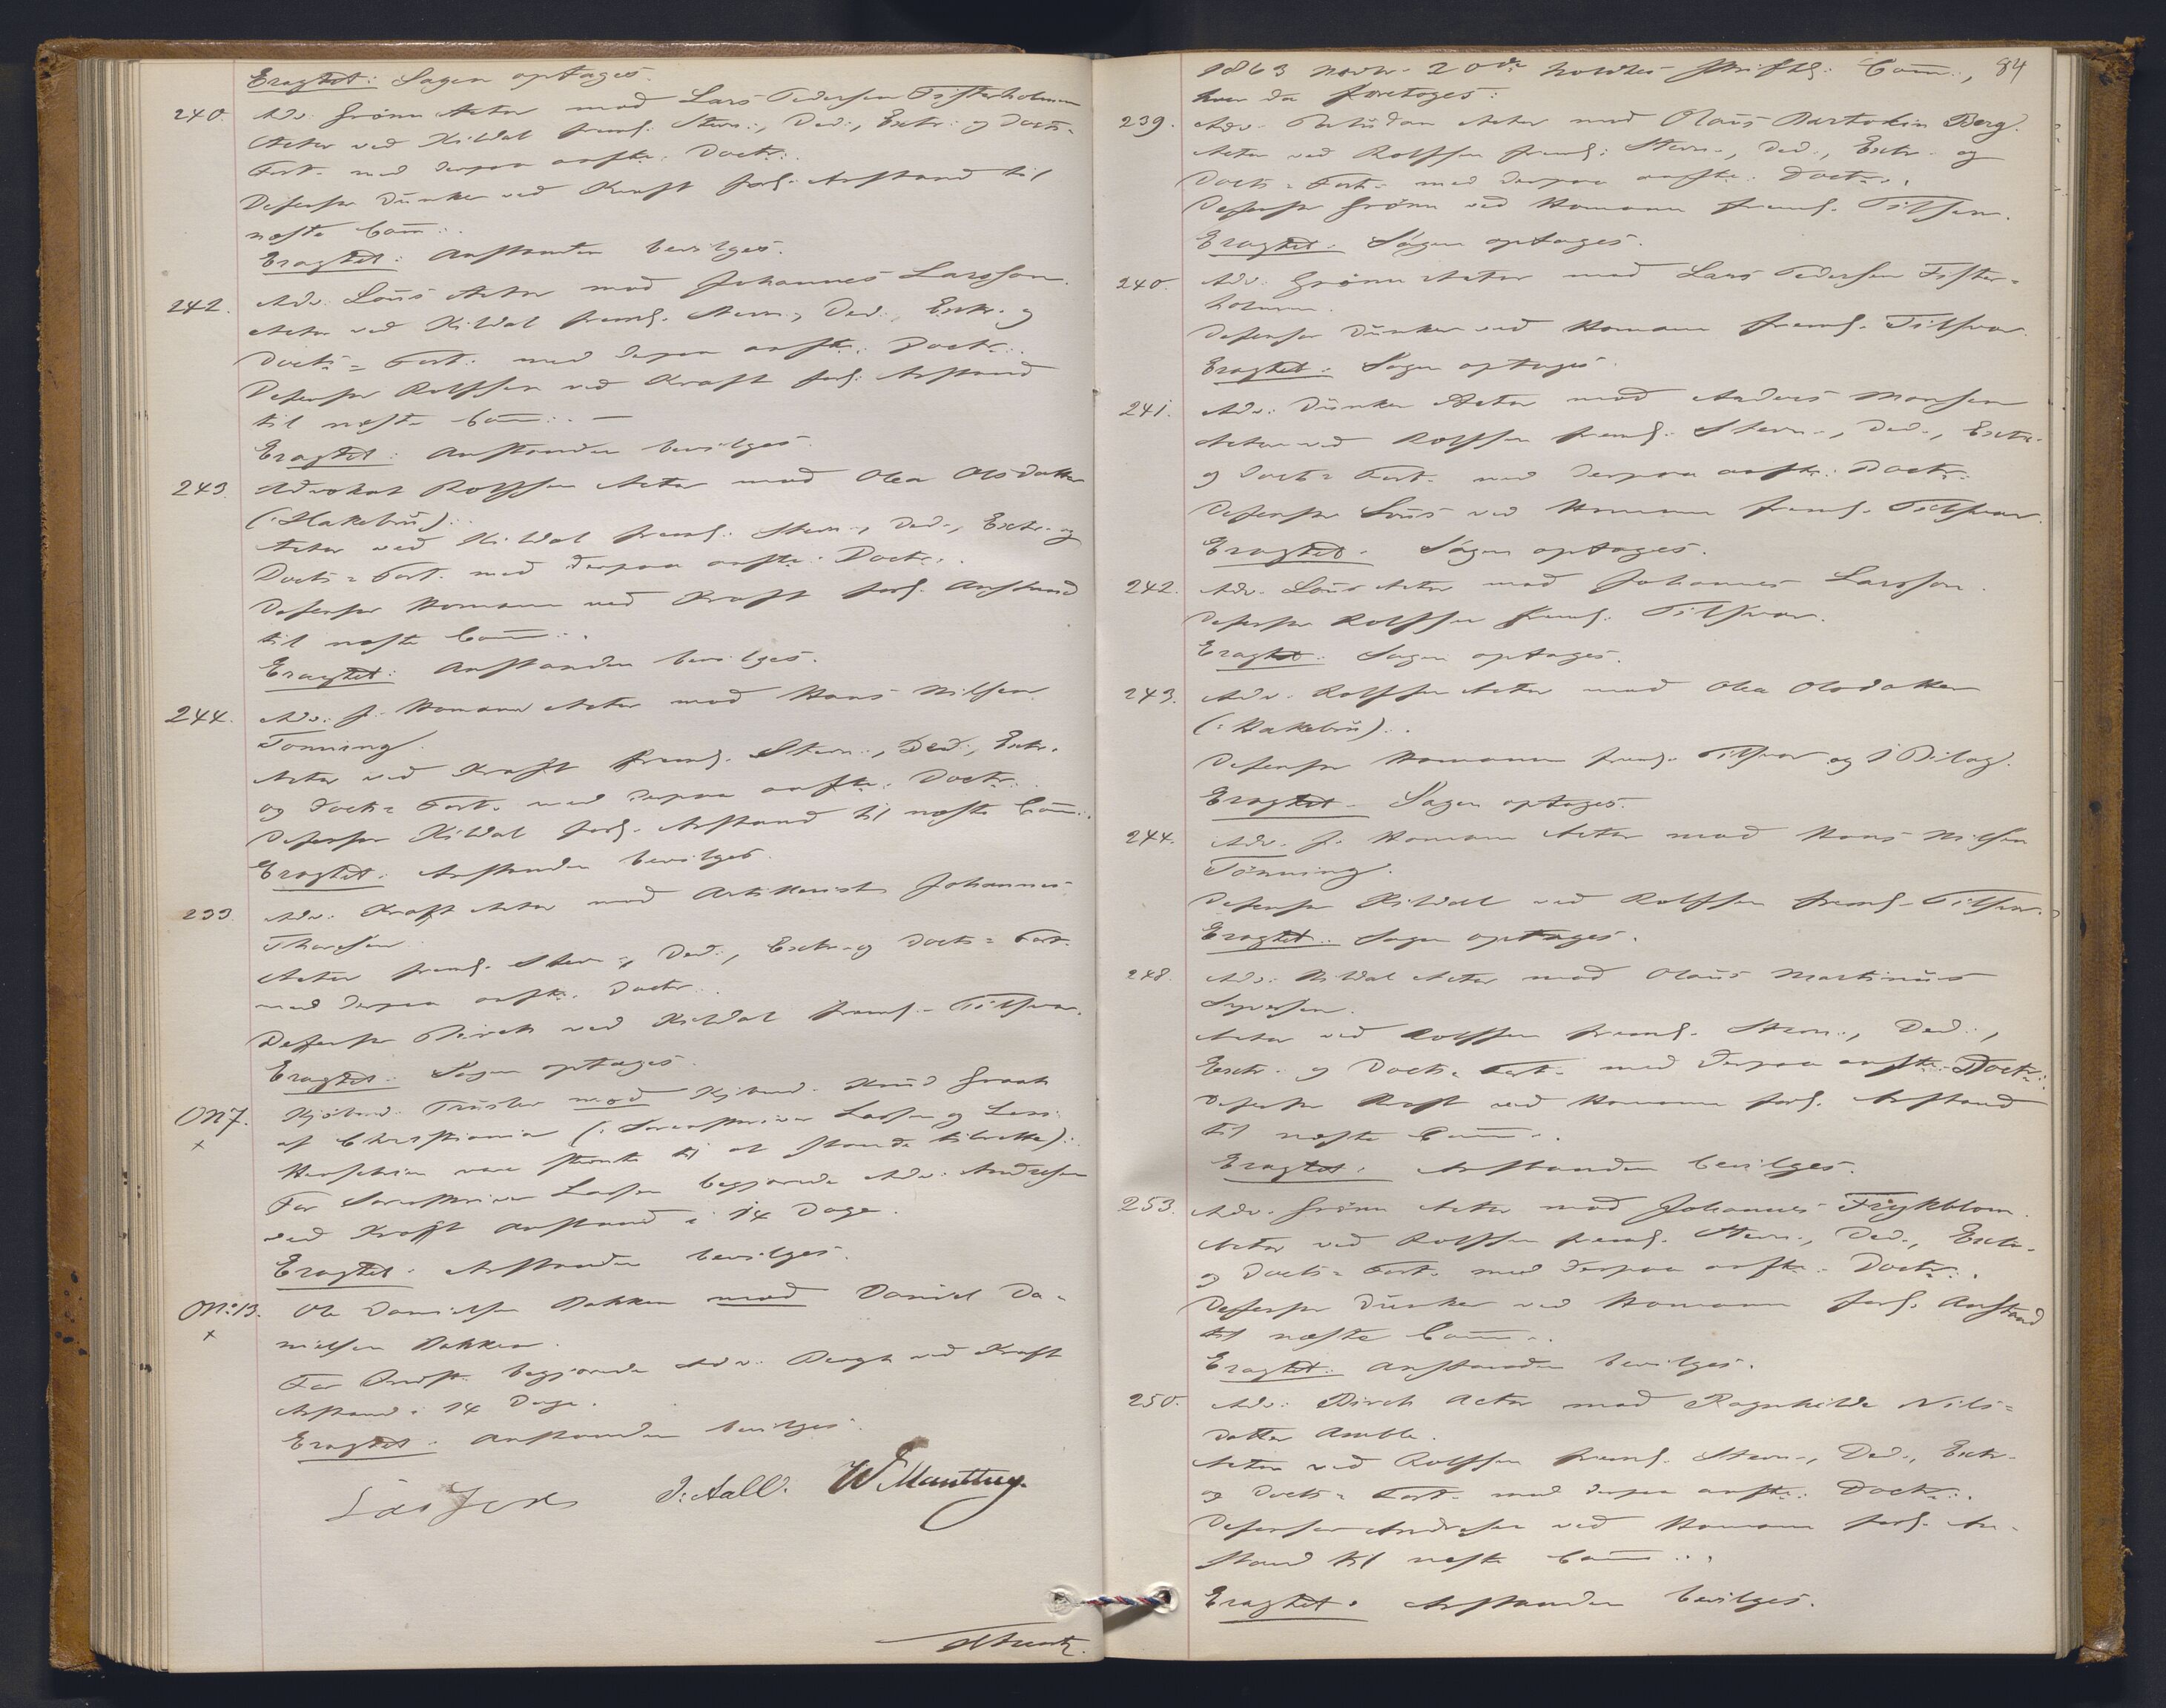 Eragtet: Sagen optages.
240. Adv. Grönn Actor mod Lars Pedersen Fisterholmen
Actor ved Kildal freml. Stevn:, Ded:, Extr: og Docts=
Fort. med derpaa Doct:.
Defensor Dunker ved Kraft forl. Anstand til
næste Com:.
Eragtet: Anstanden bevilges.
242. Adv. Lous Actor mod Johannes Larsson.
Actor ved Kildal freml. Stevn:, Ded:, Extr. og
Docts= Fort. med derpaa Doct:.
Defensor Rolfsen ved Kraft forl. Anstand
til næste Com:. —
Eragtet: Anstanden bevilges.
243. Advokat Rolfsen Actor mod Olea Olsdatter
(:Hakebru):.
Actor ved Kildal freml. Stevn:, Ded:, Extr. og
Docts= Fort. med derpaa Doct:.
Defensor Homann ved Kraft forl. Anstand
til næste Com:.
Eragtet: Anstanden bevilges.
244. Adv: J. Homann Actor mod Hans Nilsen
Tönning.
Actor ved Kraft freml. Stevn:, Ded:, Extr.
og Docts= Fort. med derpaa Doct:.
Defensor Kildal forl. Anstand til næste Com:.
Eragtet: Anstanden bevilges.
233. Adv: Kraft Actor mod Artillerist Johannes
Actor freml. Stevn:, Ded:, Extr. og Docts= Fort.
med derpaa Doct:.
Defensor Birch ved Kildal freml. Tilsvar.
Eragtet: Sagen optages.
No 7. Kjöbmd. mod Kjöbmd. Knud Graah
x af Christiania (: Sorenskriver Lassen og
vare stevnte til at staande tilrette):.
For Sorenskriver Lassen begjærede Adv: Andresen
ved Kraft Anstand i 14 Dage.
Eragtet: Anstanden bevilges.
No 13. Ole Danielsen Bakken mod Daniel Da=
x nielsen Bakken.
For begjærede Adv: Bergh ved Kraft
Anstand i 14 Dage.
Eragtet: Anstanden bevilges.
J: Aall.
1863 Novbr. 20de holdtes skriftl: Com:, 84
hvor da foretoges:
239. Adv. Actor mod Olaus Bartolin Berg.
Actor ved Rolfsen freml: Stevn:, Ded:, Extr. og
Docts= Fort. med derpaa Doct:.
Defensor Grönn ved Homann freml. Tilsvar.
Eragtet: Sagen optages.
240. Adv: Grönn Actor mod Lars Pedersen Fister=
holmen.
Defensor Dunker ved Homann freml. Tilsvar.
Eragtet: Sagen optages.
241. Adv: Dunker Actor mod Anders Monsen
Actor ved Rolfsen freml. Stevn:, Ded:, Extr.
og Docts= Fort. med derpaa Doct:.
Defensor Lous ved Homann freml. Tilsvar.
Eragtet: Sagen optages.
242. Adv. Lous Actor mod Johannes Larsson.
Defensor Rolfsen freml. Tilsvar.
Eragtet: Sagen optages.
243. Adv. Rolfsen Actor mod Olea Olsdatter
(:Hakebru):.
Defensor Homann freml. Tilsvar og 1 Bilag.
Eragtet: Sagen optages.
244. Adv. J. Homann Actor mod Hans Nilsen
Tönning.
Defensor Kildal ved Rolfsen freml. Tilsvar.
Eragtet: Sagen optages.
248. Adv: Kildal Actor mod Olaus Martinus
Syversen.
Actor ved Rolfsen freml. Stevn:, Ded:,
Extr. og Docts= Fort. med derpaa Doct:.
Defensor Kraft ved Homann forl. Anstand
til næste Com:.
Eragtet: Anstanden bevilges.
253. Adv. Grönn Actor mod Johannes Frykblom.
Actor ved Rolfsen freml. Stevn:, Ded:, Extr.
og Docts= Fort. med derpaa Doct:.
Defensor Dunker ved Homann forl. Anstand
til næste Com:.
Eragtet: Anstanden bevilges.
250. Adv: Birch Actor mod Ragnhilde Nils=
datter Amble.
Actor ved Rolfsen freml. Stevn:, Ded:, Extr.
og Docts= Fort. med derpaa Doct:.
Defensor Andresen ved Homann forl. An=
stand til næste Com:.
Eragtet: Anstanden bevilges.